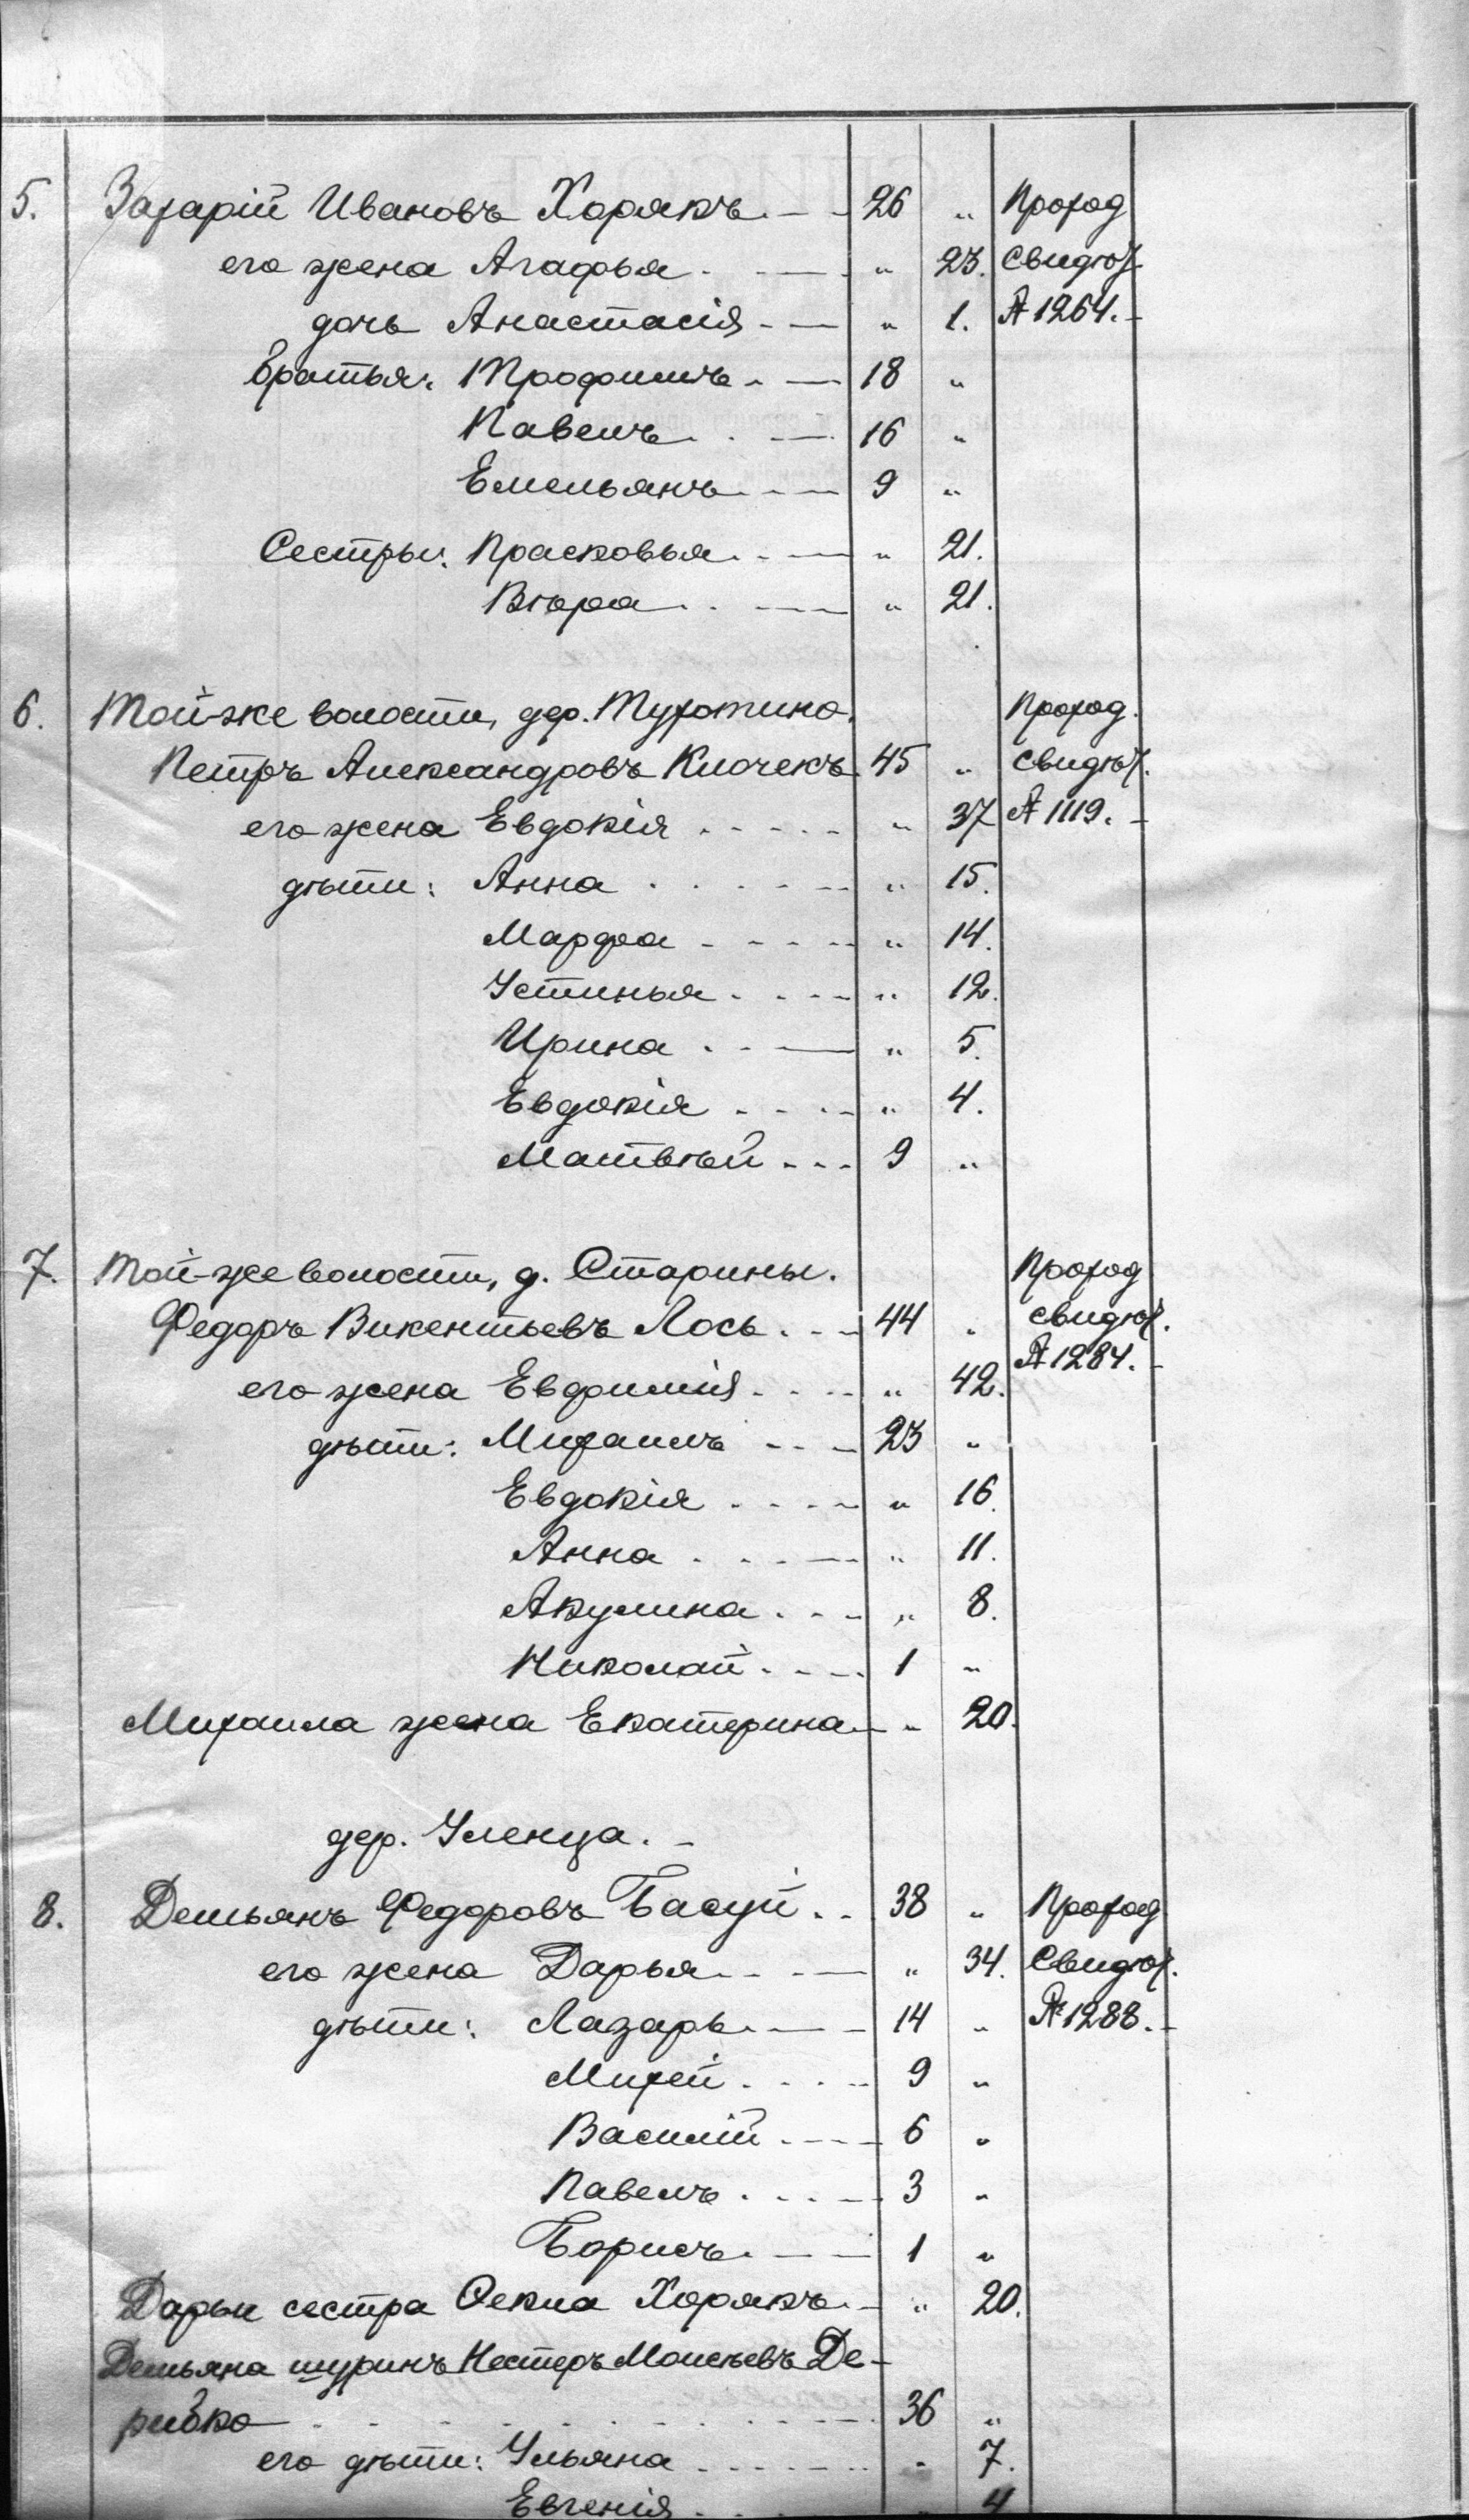 5. Захарій Ивановъ Хорякъ. — 26 „ Проход
его жена Агафья. — „ 23. Свидѣт.
дочь Анастасія — „ 1. № 1264. —
братья: Трофимъ. — 18 „
Павелъ. — 16 „
Емельянъ — 9 „
Сестры: Прасковья. — „ 21.
Вѣра. — „ 21.
6. Той-же волости, дер. Мухотино. Проход.
Петръ Александровъ Клочекъ 45 „ Свидѣт.
его жена Евдокія „ 37 № 1119. —
дѣти: Анна „ 15.
Марфа „ 14.
Устинья „ 12.
Ирина „ 5.
Евдокія „ 4.
Матвѣй 9 „
7. Той-же волости, д. Старины. Проход
Федоръ Викентьевъ Лось 44 „ Свидѣт.
№ 1284. —
его жена Евфимія „ 42.
дѣти: Михаилъ 23 „
Евдокія „ 16.
Анна „ 11.
Акулина „ 8.
Николай 1 „
Михаила жена Екатерина — „ 20.
дер. Уленца. —
8. Демьянъ Федоровъ Басуй 38 „ Проход
его жена Дарья — „ 34. Свидѣт.
дѣти: Лазарь — 14 „ № 1288. —
Михей 9 „
Василій 6 „
Павелъ 3 „
Борисъ — 1 „
Дарьи сестра Ѳекла Хорякъ — „ 20.
Демьяна шуринъ Несторъ Моисеевъ Де-
рибко 36 „
его дѣти: Ульяна „ 7.
Евгенія „ 4